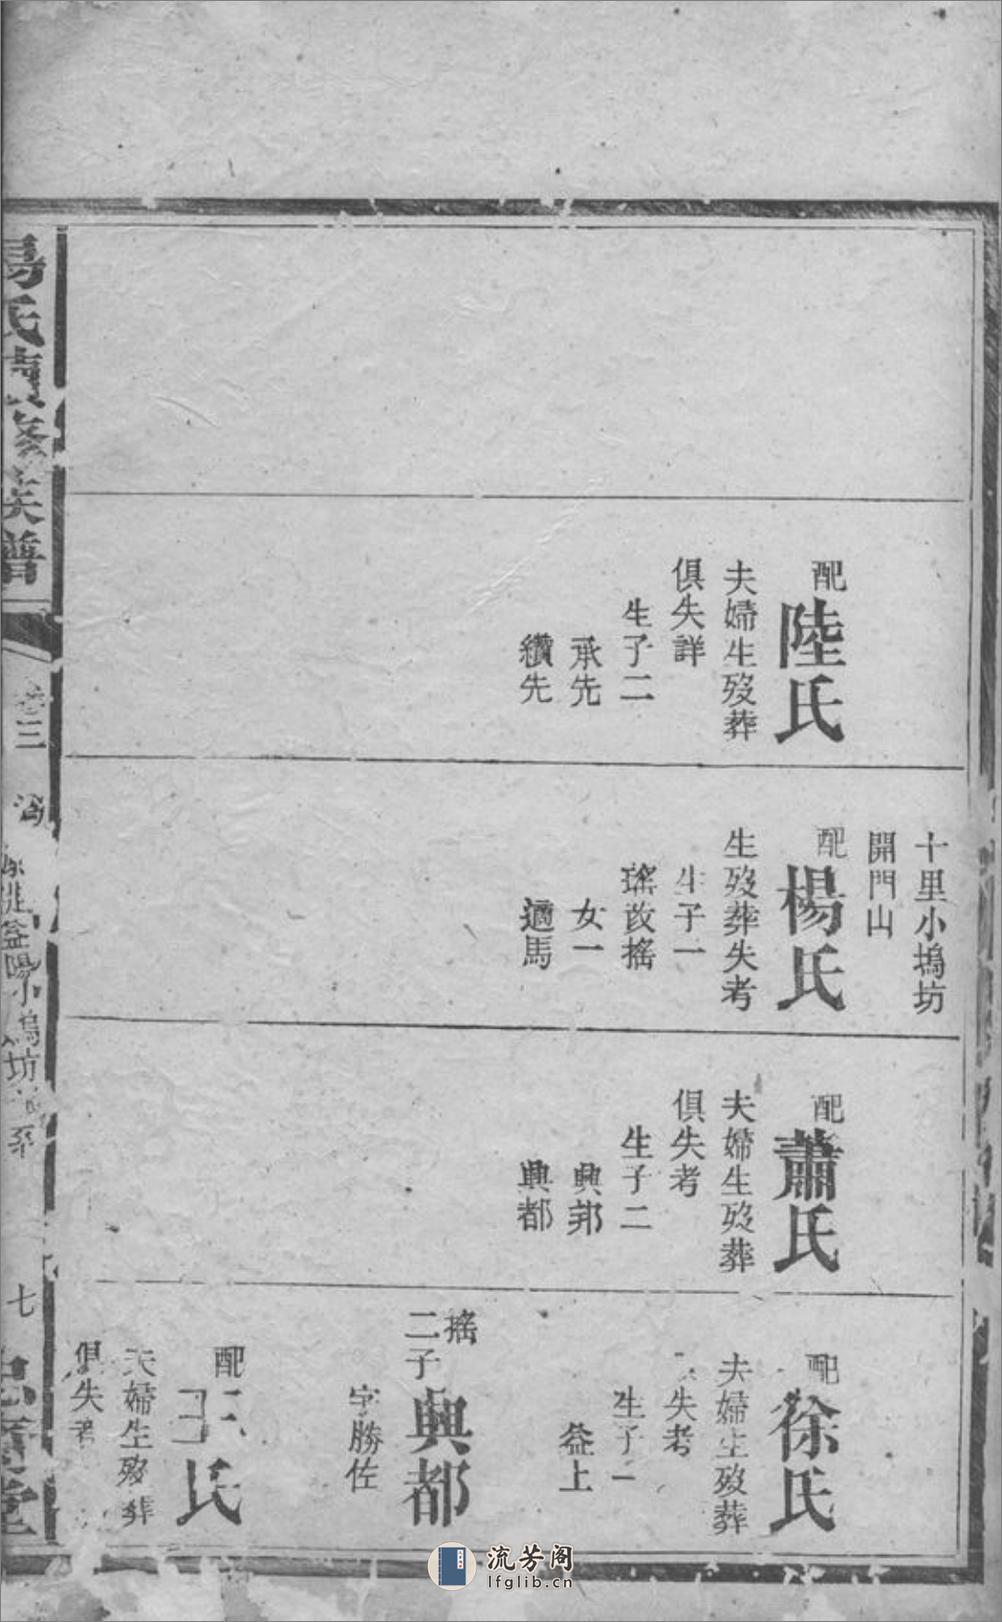 配
陸氏
夫婦生歿葬
俱失詳
生子二
承先
纘先
十里小塢坊
開門山
配
楊氏
生歿葬失考
生子一
瑤改搖
女一
適馬
配
蕭氏
夫婦生歿葬
俱失考
生子二
興邦
興都
配
徐氏
夫婦生歿葬
失考
生子一
益上
搖
二子
興都
字勝佐
配
王氏
夫婦生歿葬
俱失考
氏續修族譜
卷三
益陽小塢坊
七
堂
流芳阁
lfglib.cn